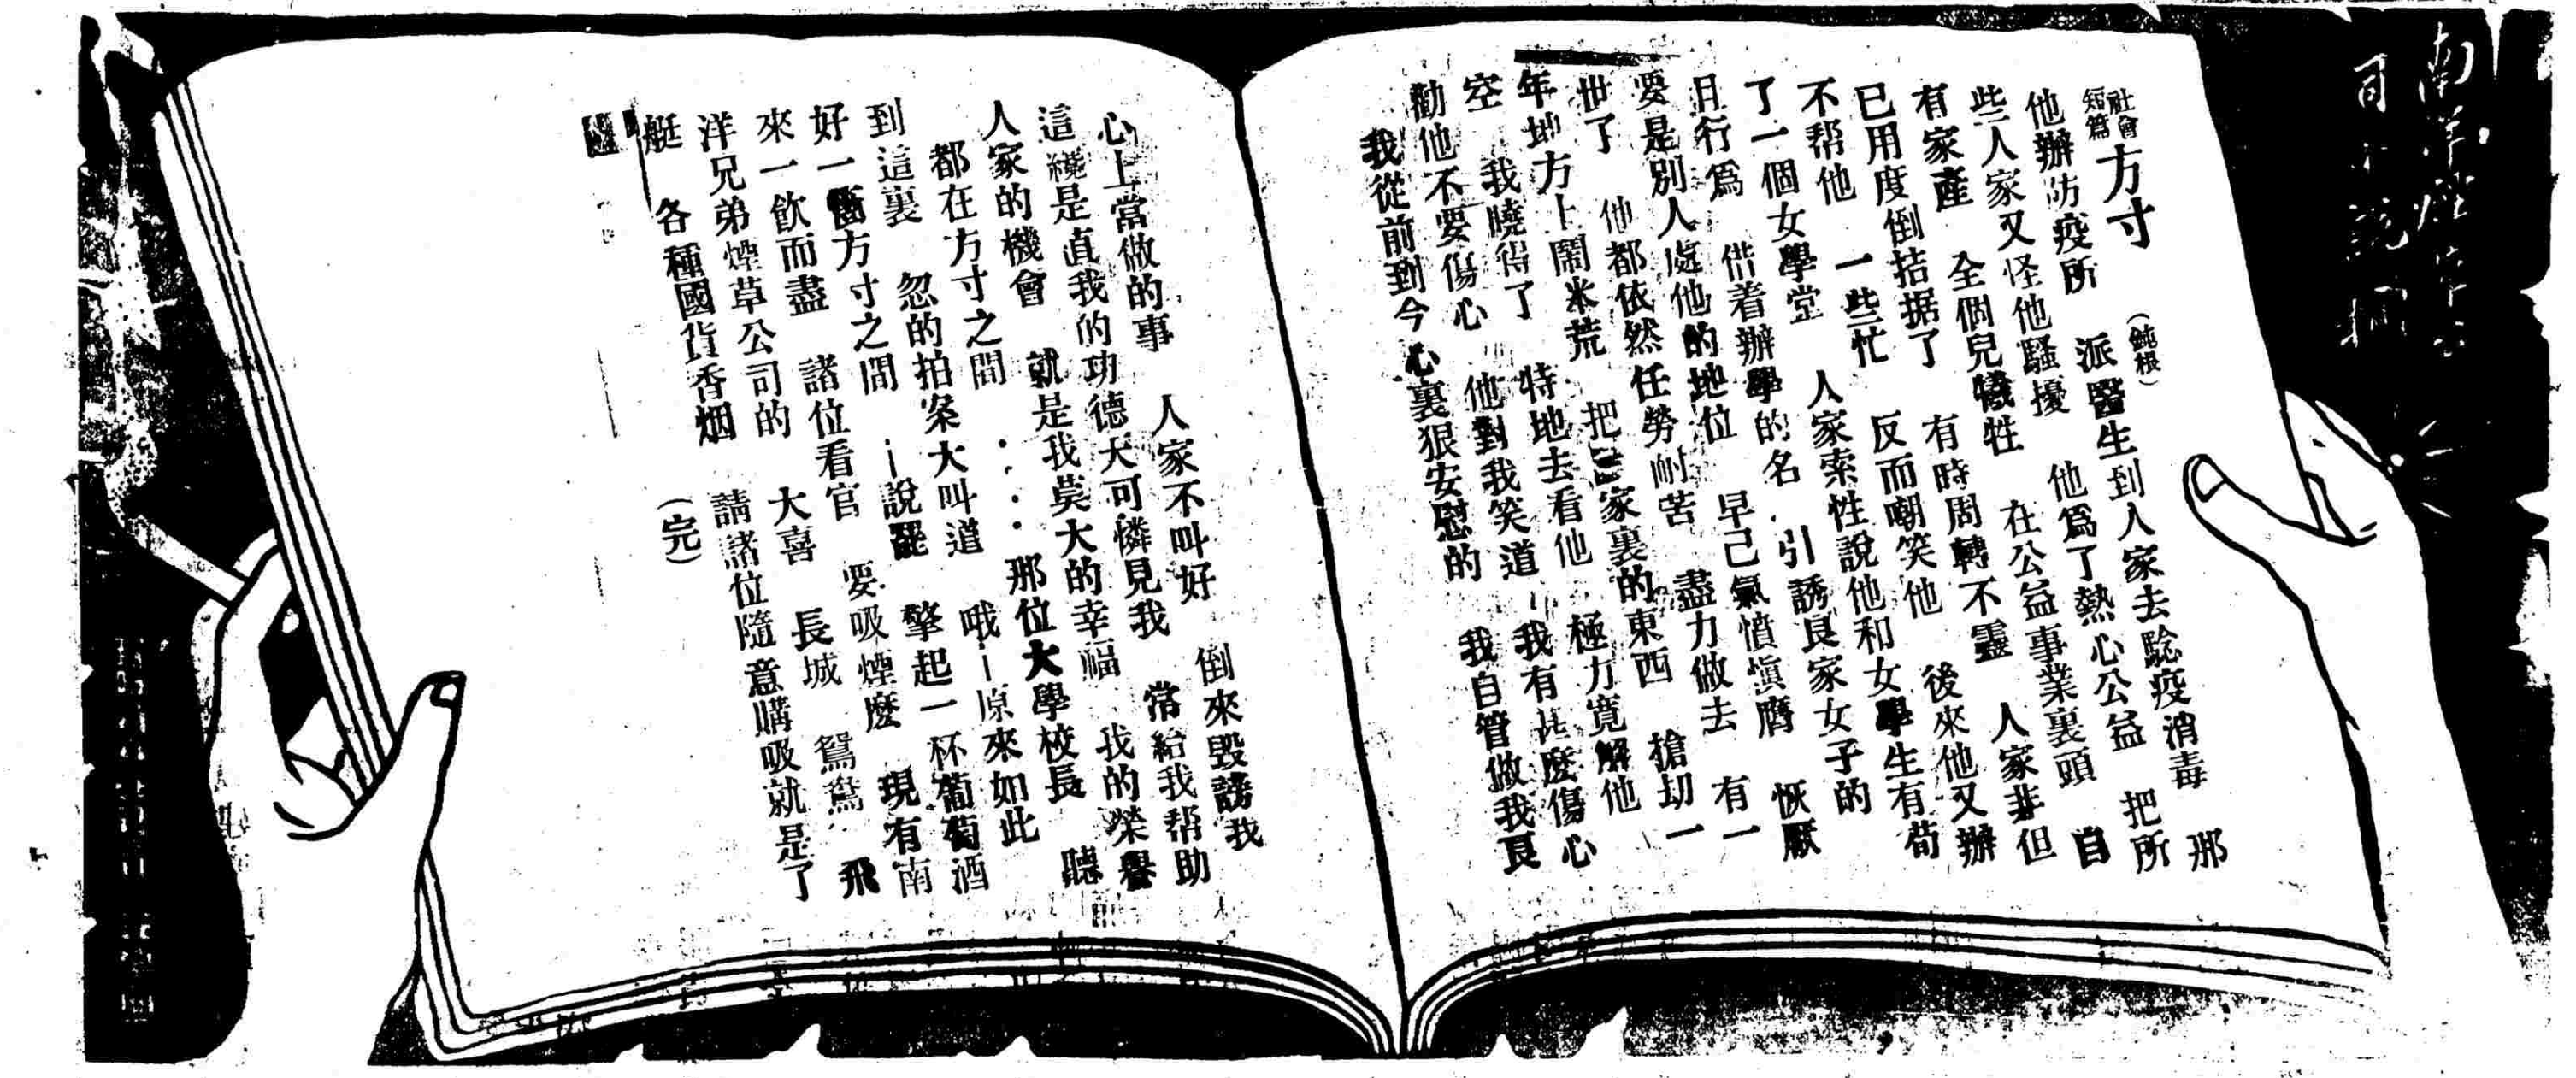 社會
短篇
方寸 （鈍根）
他辦防疫所 派醫生到人家去騐疫消毒 那
些人家又怪他騷擾 他爲了熱心公益 把所
有家產 全個兒犧牲 在公益事業裏頭 自
已用度倒拮据了 有時周轉不靈 人家非但
不帮他 一些忙 反而嘲笑他 後來他又辦
了一個女學堂 人家索性說他和女學生有苟
且行爲 借着辦學的名 引誘良家女子的
要是別人處他的地位 早已氣憤愼膺 恢厭
世了 他都依然任勞耐苦 盡力做去 有一
年地方上鬧米荒 把家裏的東西 搶刧一
空 我曉得了 特地去看他 極力寬解他
勸他不要傷心 他對我笑道 我有甚麽傷心
我從前到今心裏狠安慰的 我自管做我良
心上當做的事 人家不叫好 倒來毀謗我
這纔是直我的功德天可憐見我 常給我帮助
人家的機會 就是我莫大的幸福 我的榮譽
都在方寸之間 ···· 那位大學校長 聽
到這裏 忽的拍案大叫道 哦—原來如此
好一個方寸之間 —說罷 擎起一杯葡萄酒
來一飲而盡 諸位看官 要吸煙麽 現有南
洋兄弟煙草公司的 大喜 長城 鴛鴦 飛
艇 各種國貨香烟 請諸位隨意購吸就是了
（完）
南洋煙草公
司小說闌